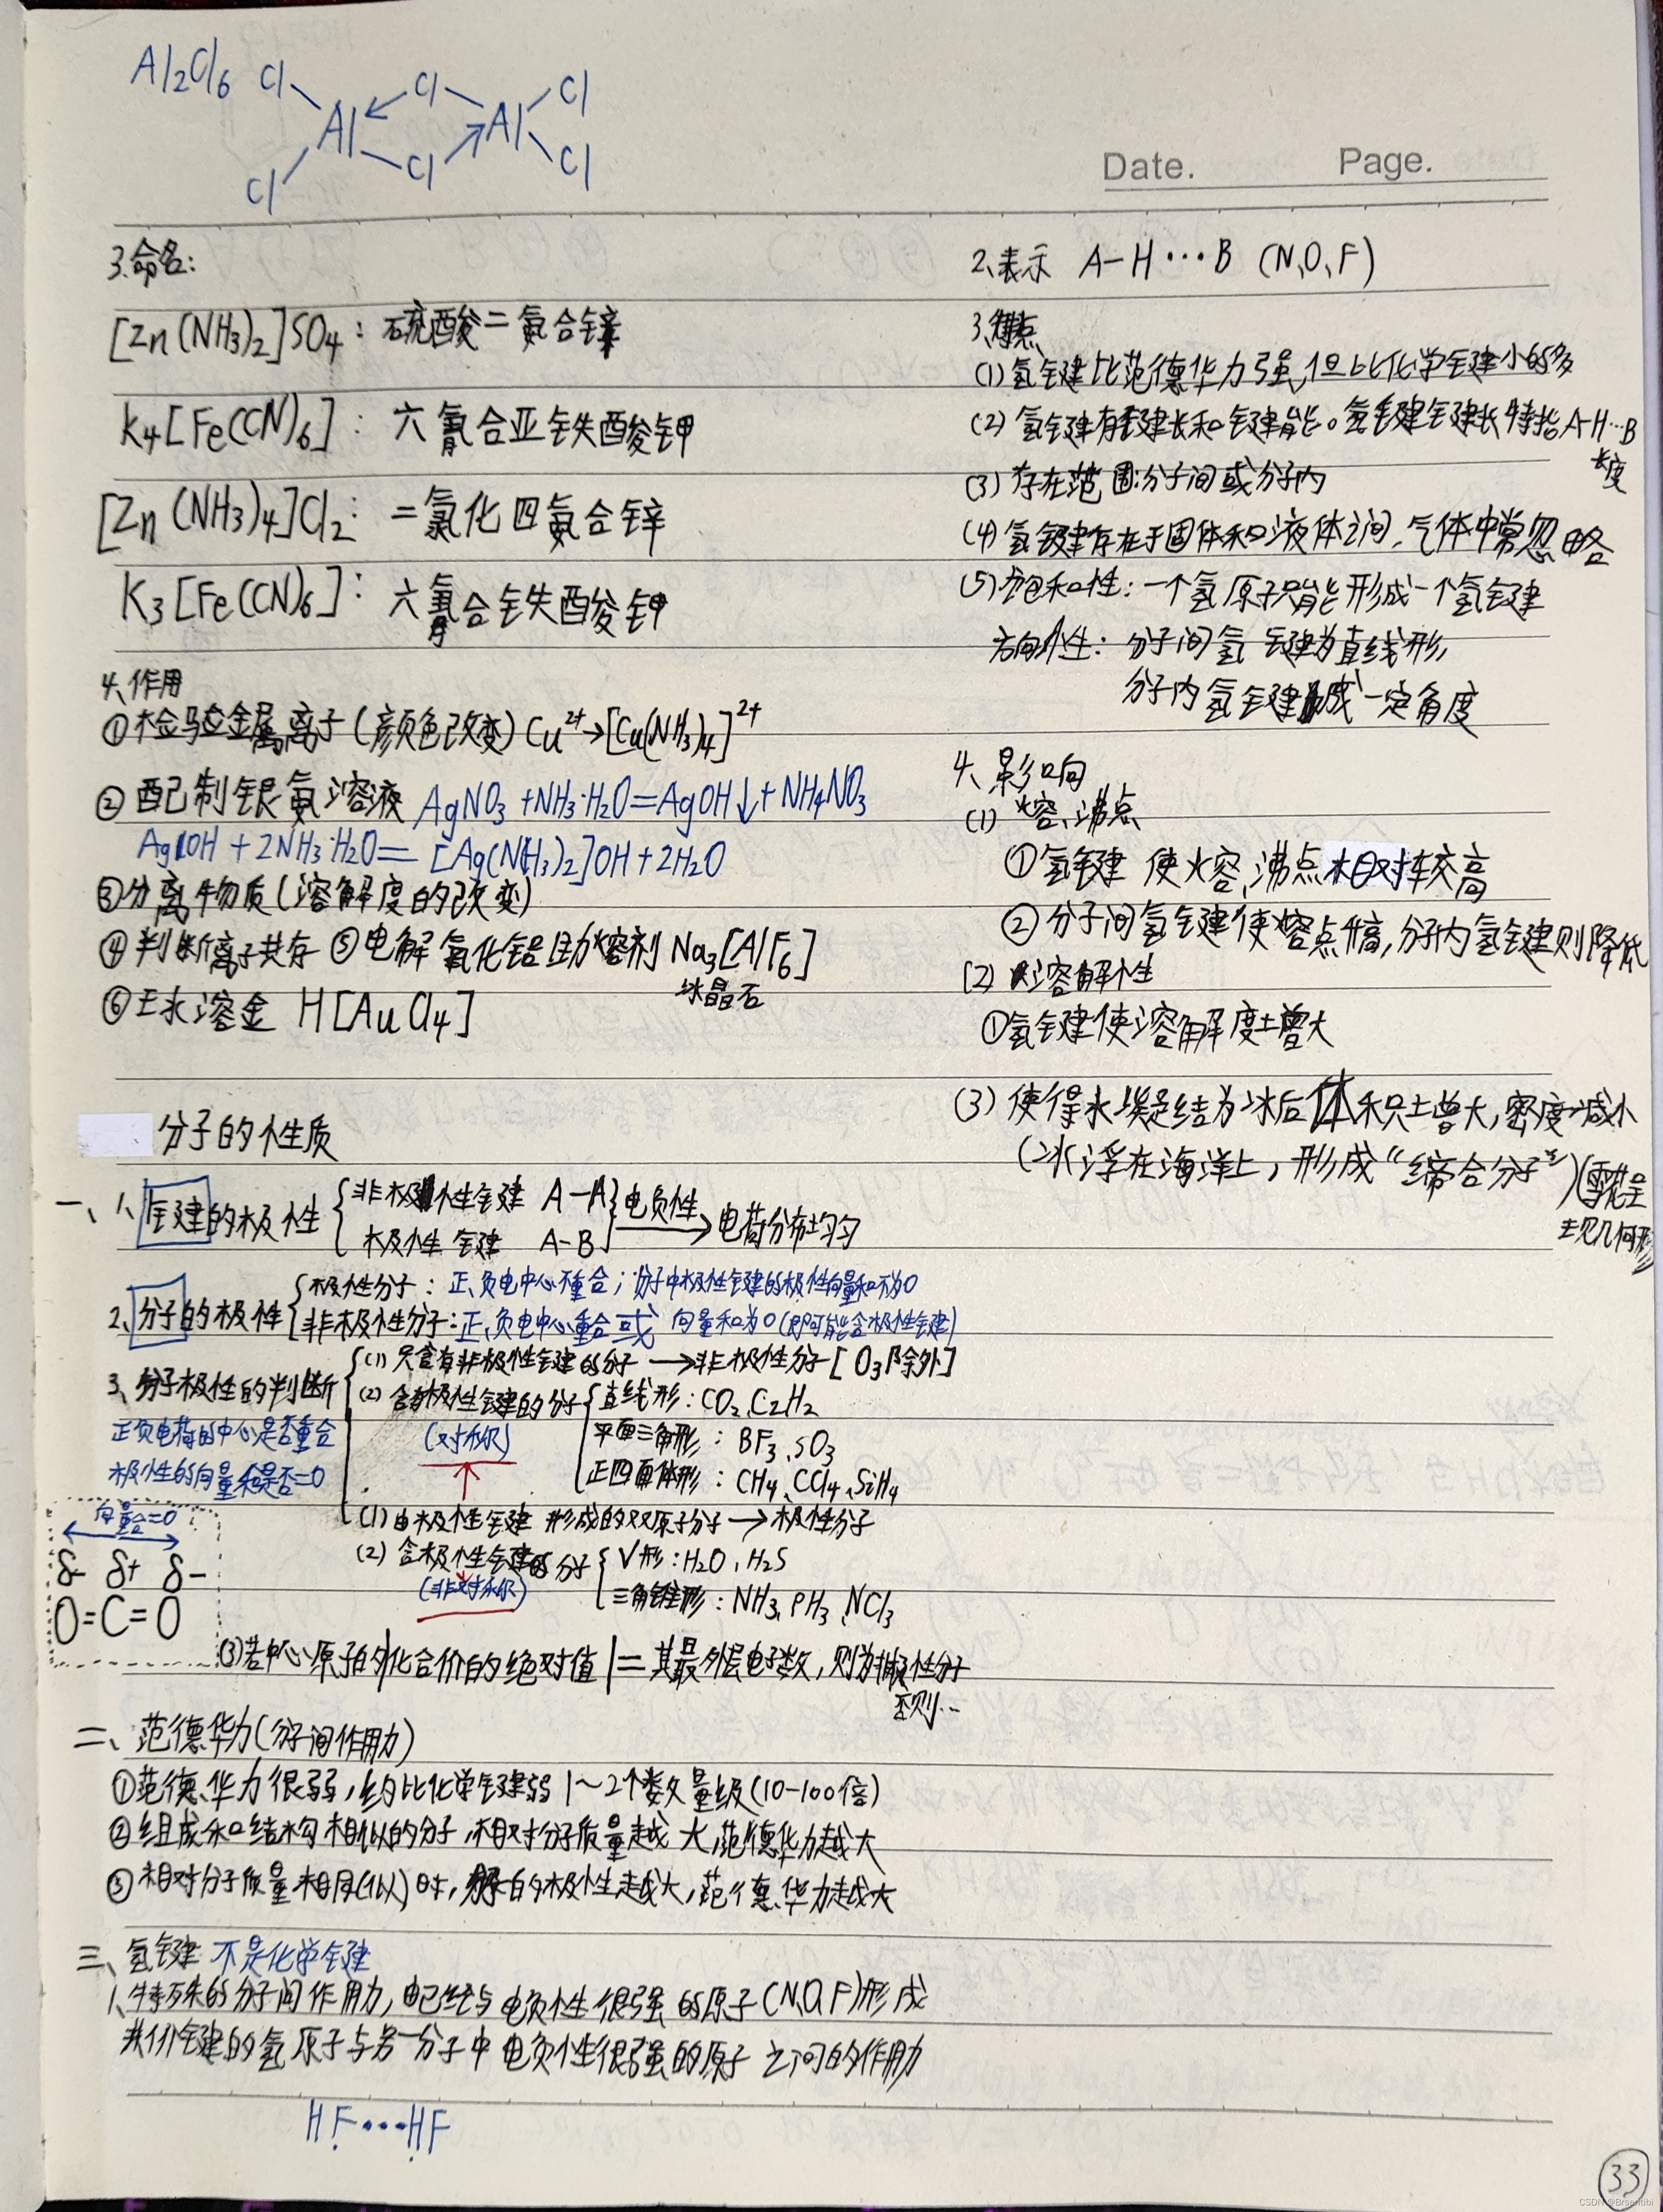 Al2Cl6
Cl Cl Cl
Al Al
Cl Cl Cl
Date. Page.
3.命名:
[Zn(NH3)2]SO4: 硫酸二氨合锌
K4[Fe(CN)6]: 六氰合亚铁酸钾
[Zn(NH3)4]Cl2: 二氯化四氨合锌
K3[Fe(CN)6]: 六氰合铁酸钾
4、作用
①检验金属离子(颜色改变) Cu2+→[Cu(NH3)4]2+
②配制银氨溶液 AgNO3+NH3·H2O=AgOH↓+NH4NO3
AgOH+2NH3·H2O=[Ag(NH3)2]OH+2H2O
③分离物质(溶解度的改变)
④判断离子共存 ⑤电解氧化铝助熔剂 Na3[AlF6]
冰晶石
⑥王水溶金 H[AuCl4]
分子的性质
一、1、键的极性 { 非极性键 A-A
极性键 A-B } 电负性→电荷分布均匀
2、分子的极性 { 极性分子: 正、负电中心不重合;分子中极性键的极性向量和不为0
非极性分子:正、负电中心重合或 向量和为0(即可能含极性键)
3、分子极性的判断 { (1) 只含有非极性键的分子→非极性分子[O3除外]
(2) 含有极性键的分子 { 直线形: CO2、C2H2
(对称) 平面三角形: BF3、SO3
正四面体形: CH4、CCl4、SiH4
正负电荷的中心是否重合
极性的向量和是否=0
(1) 由极性键形成的双原子分子→极性分子
(2) 含极性键的分子 { V形: H2O、H2S
(非对称) 三角锥形: NH3、PH3、NCl3
向量合=0
δ- δ+ δ-
O=C=O
(3)若中心原子的|化合价的绝对值|=其最外层电子数,则为非极性分子
否则…
二、范德华力(分子间作用力)
①范德华力很弱,约比化学键弱1~2个数量级(10-100倍)
②组成和结构相似的分子,相对分子质量越大,范德华力越大
③相对分子质量相同(似)时,分子的极性越大,范德华力越大
三、氢键 不是化学键
1、特殊的分子间作用力,由已经与电负性很强的原子(N、O、F)形成
共价键的氢原子与另一分子中电负性很强的原子之间的作用力
HF···HF
2、表示 A-H···B (N、O、F)
3、特点
(1)氢键比范德华力强,但比化学键小的多
(2)氢键有键长和键能。氢键键长特指A-H···B
长度
(3)存在范围:分子间或分子内
(4)氢键存在于固体和液体之间,气体中常忽略
(5)饱和性:一个氢原子只能形成一个氢键
方向性: 分子间氢键为直线形,
分子内氢键成一定角度
4、影响
(1) 熔、沸点
①氢键 使熔、沸点相对较高
②分子间氢键使熔点升高,分子内氢键则降低
(2) 溶解性
①氢键使溶解度增大
(3) 使得水凝结为冰后体积增大,密度减小
(冰浮在海洋上,形成“缔合分子”)(雪花呈
现几何形)
33
CSDN @Brsentibi